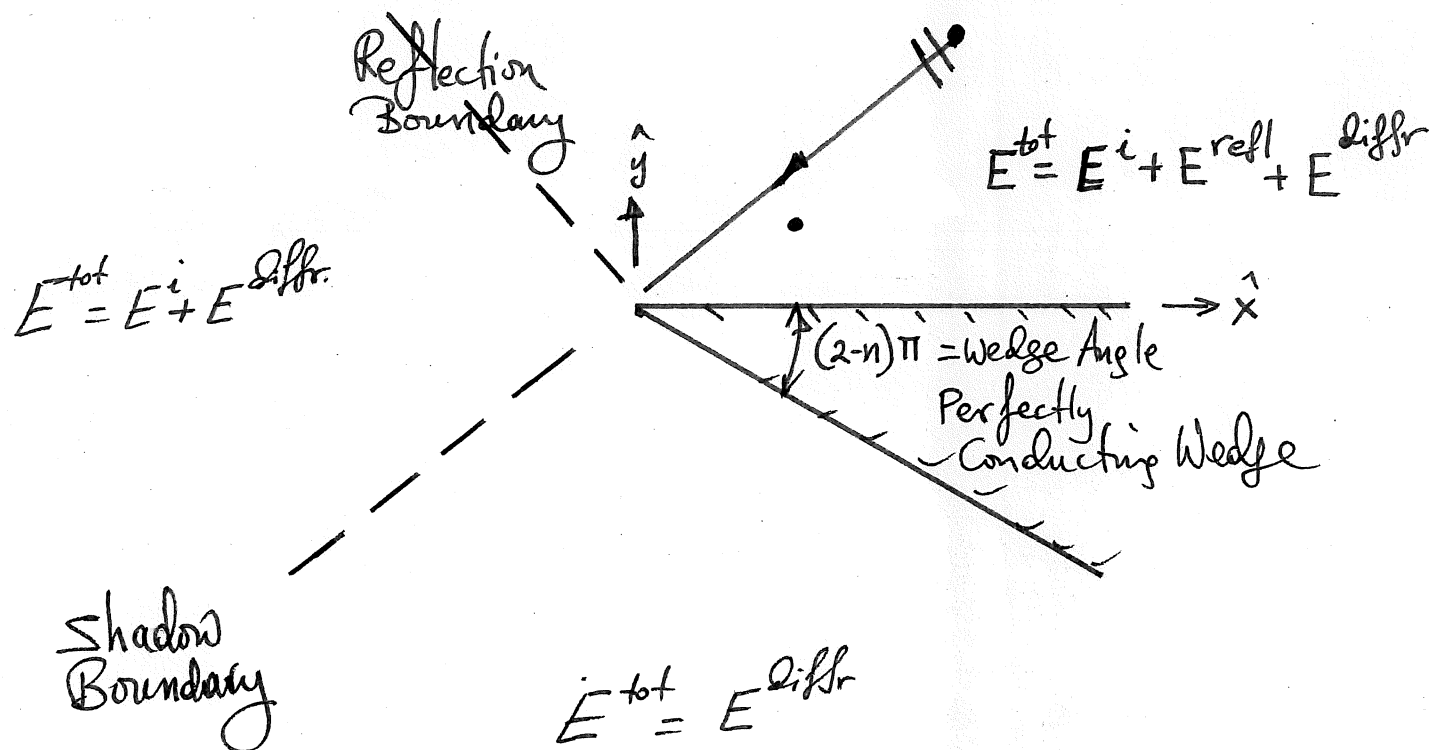 Reflection
Boundary
ŷ
E^tot = E^i + E^refl + E^diffr
E^tot = E^i + E^diffr.
x̂
(2-n)π = Wedge Angle
Perfectly
Conducting Wedge
Shadow
Boundary
E^tot = E^diffr